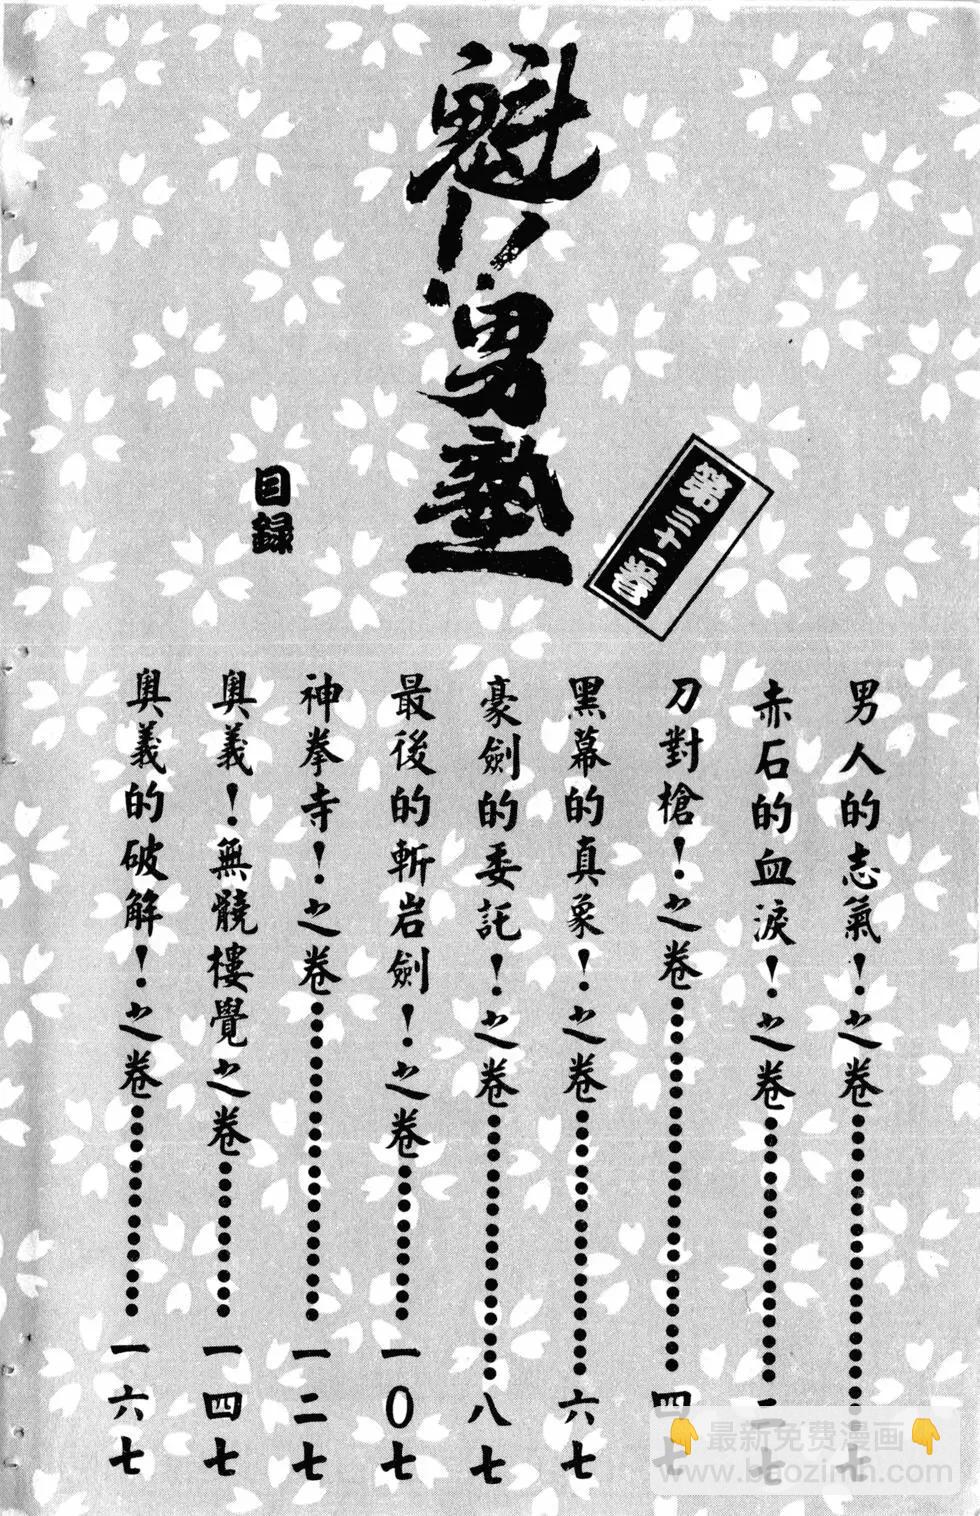 魁!!男塾
第三十一卷
目錄
男人的志氣!之卷⋯⋯⋯⋯七
赤石的血淚!之卷⋯⋯⋯⋯二七
刀對槍!之卷⋯⋯⋯⋯四七
黑幕的真象!之卷⋯⋯⋯⋯六七
豪劍的委託!之卷⋯⋯⋯⋯八七
最後的斬岩劍!之卷⋯⋯⋯⋯一0七
神拳寺!之卷⋯⋯⋯⋯一二七
奧義!無髐樓覺之卷⋯⋯⋯⋯一四七
奧義的破解!之卷⋯⋯⋯⋯一六七
👇最新免费漫画👇
www.baozimh.com